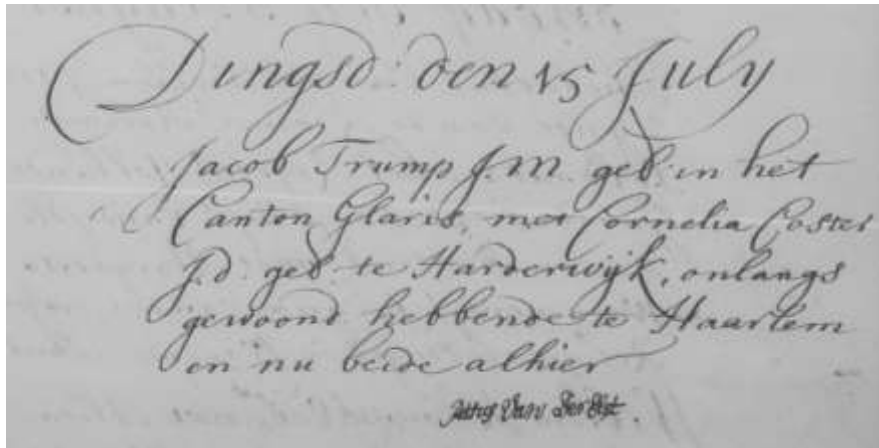 Dingsd: den 15 July
Jacob Trump J.M geb in het
Canton Glaris, met Cornelia Coster
J.d. geb te Harderwijk, onlangs
gewoond hebbende te Haarlem
en nu beide alhier
Van Der